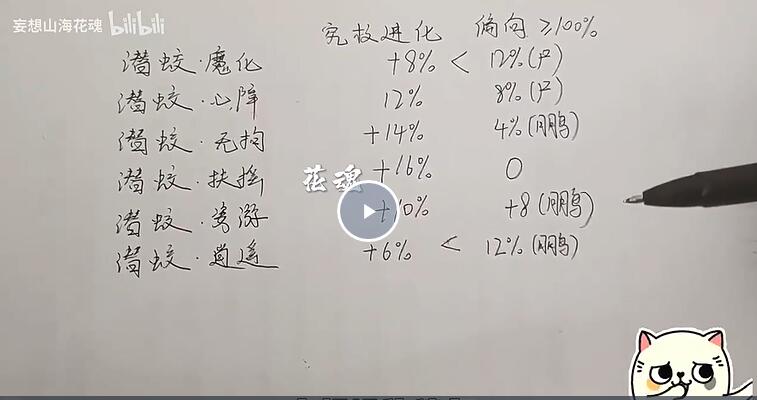 妄想山海花魂 bilibili
究极进化 偏向 ≥100%
潜蛟·魔化 +8% < 12%(尸)
潜蛟·心障 12% 8%(尸)
潜蛟·无拘 +14% 4%(鹏鸟)
潜蛟·扶摇 +16% 0
花魂
潜蛟·游 +10% +8(鹏鸟)
潜蛟·逍遥 +6% < 12%(鹏鸟)